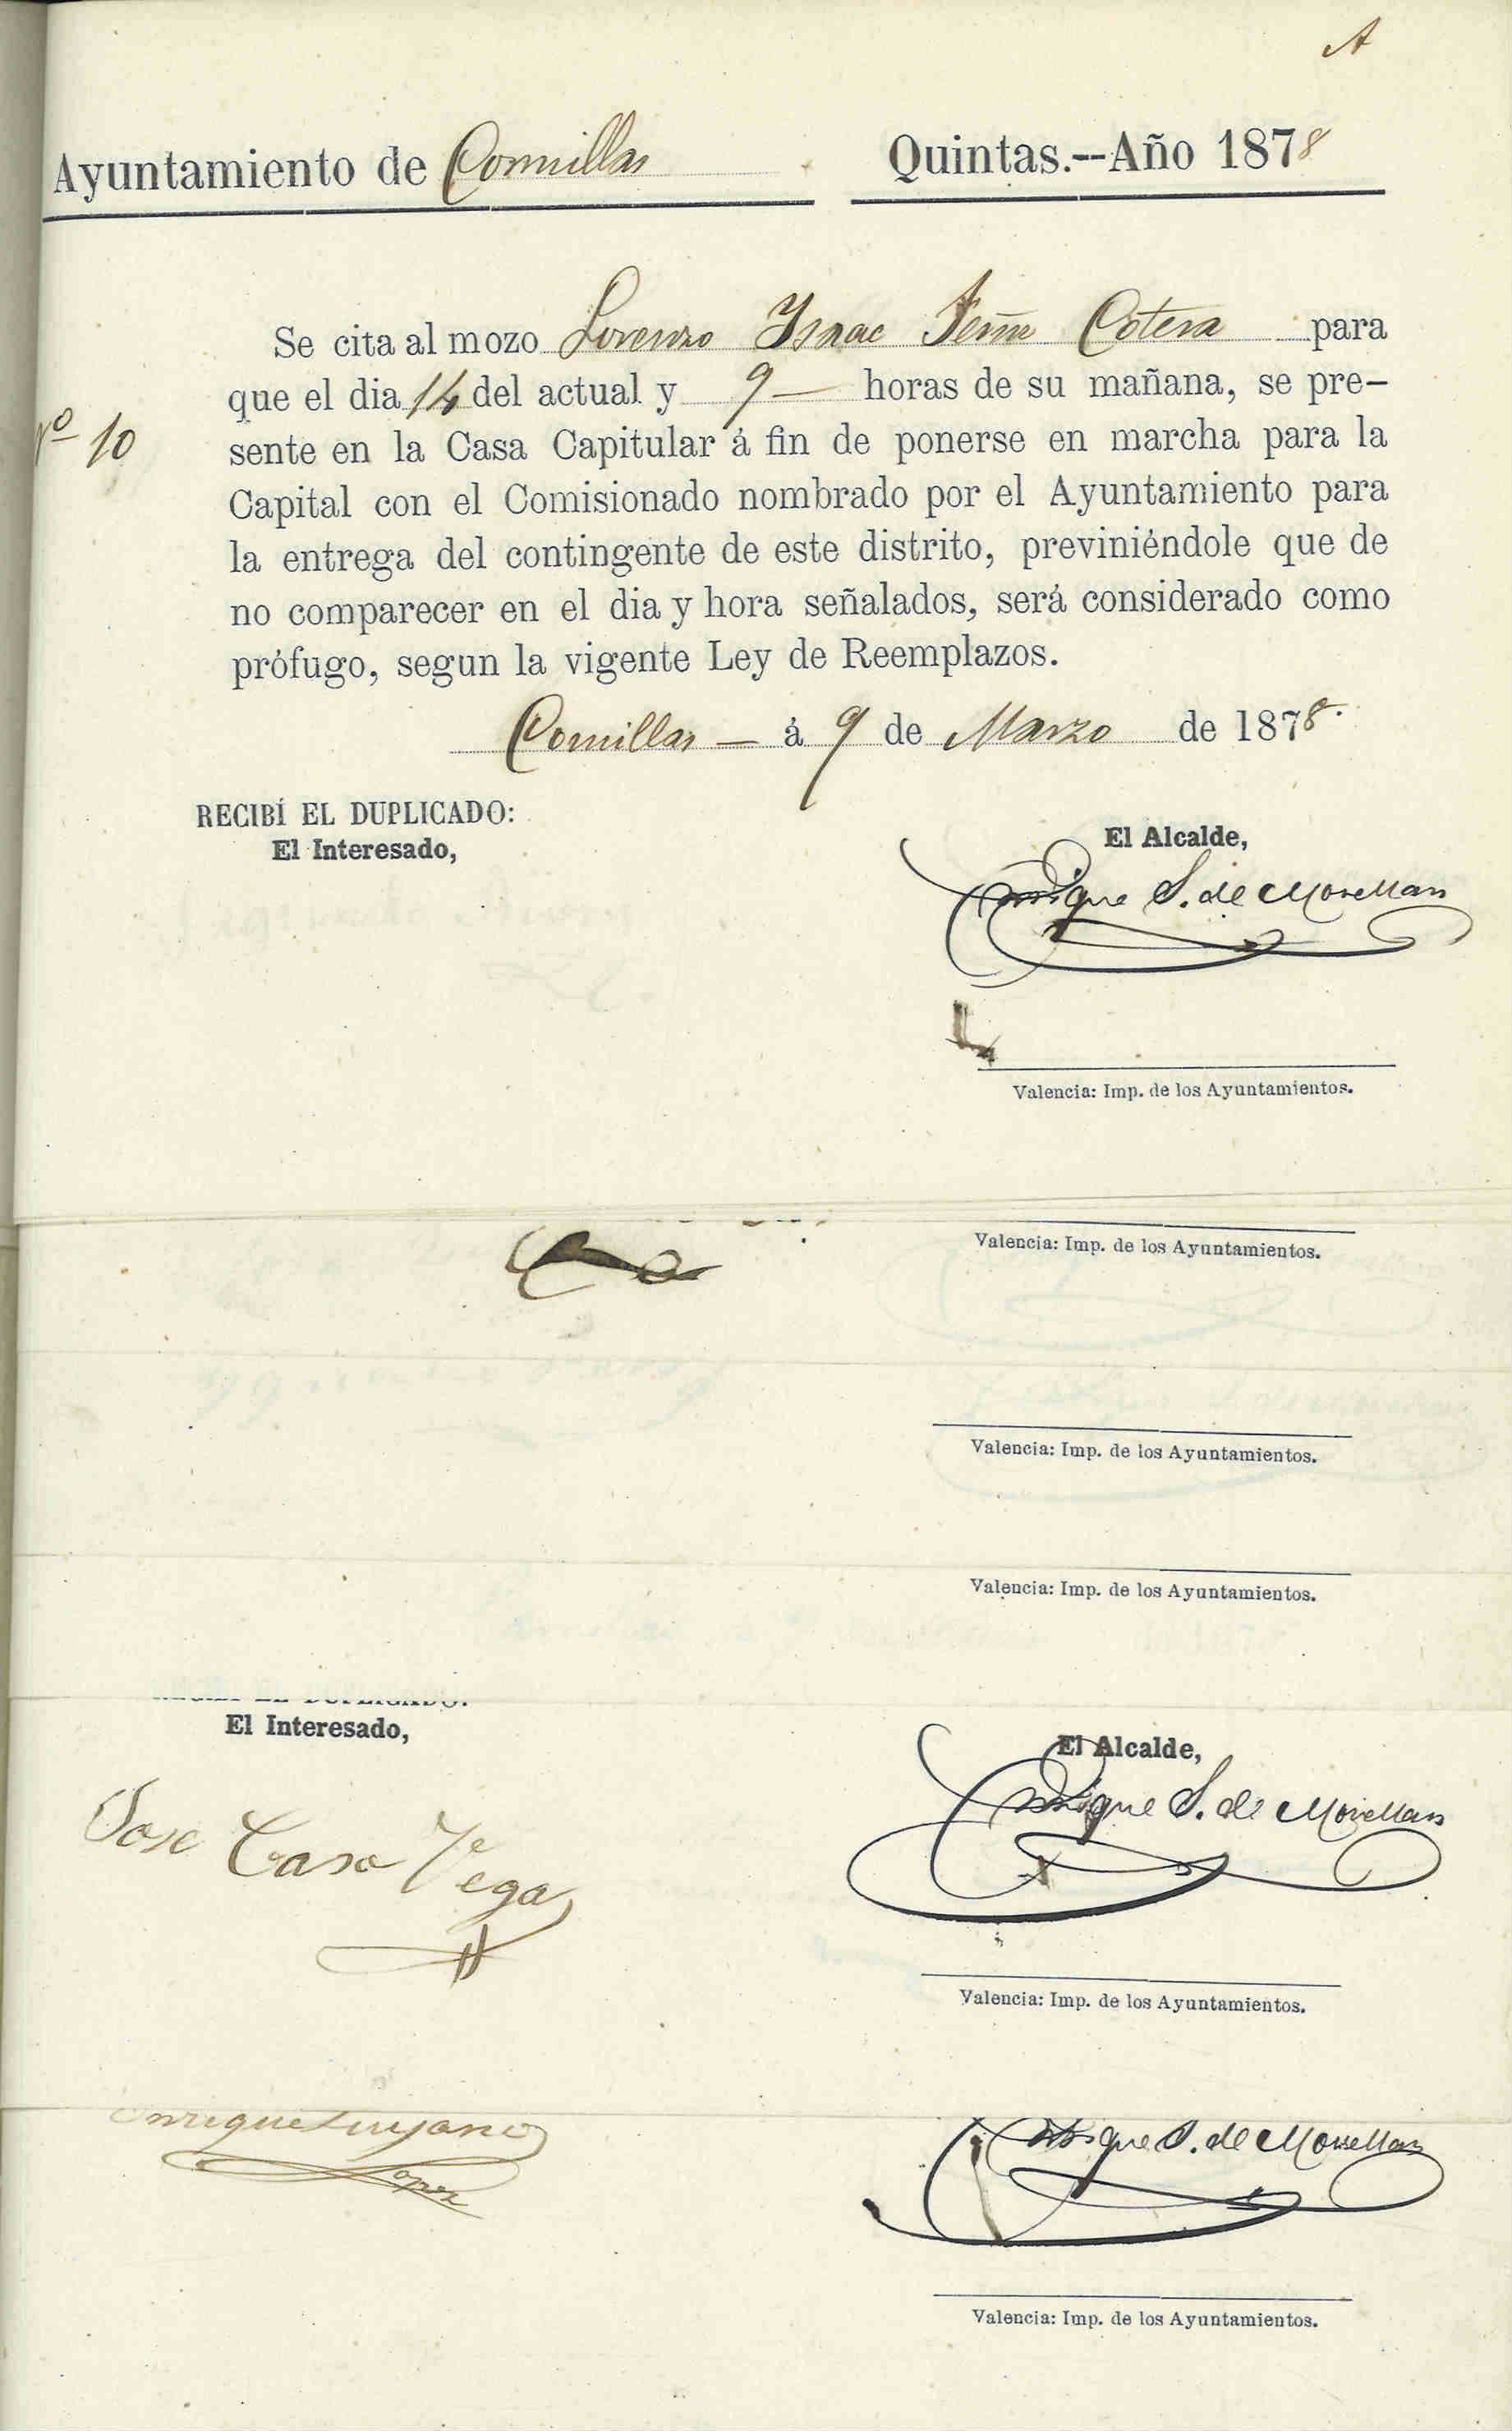 A
Ayuntamiento de Comillas Quintas.--Año 1878
Se cita al mozo Lorenzo Isaac Cotera para
que el dia 14 del actual y 9 — horas de su mañana, se pre-
Nº 10
sente en la Casa Capitular á fin de ponerse en marcha para la
Capital con el Comisionado nombrado por el Ayuntamiento para
la entrega del contingente de este distrito, previniéndole que de
no comparecer en el dia y hora señalados, será considerado como
prófugo, segun la vigente Ley de Reemplazos.
Comillas — á 9 de Marzo de 1878.
RECIBÍ EL DUPLICADO:
El Interesado,
El Alcalde,
Enrique S. de Movellan
Valencia: Imp. de los Ayuntamientos.
Valencia: Imp. de los Ayuntamientos.
Valencia: Imp. de los Ayuntamientos.
Valencia: Imp. de los Ayuntamientos.
RECIBÍ EL DUPLICADO:
El Interesado,
El Alcalde,
Jose Caso Vega
Enrique S. de Movellan
Valencia: Imp. de los Ayuntamientos.
Enrique
Lopez
Enrique S. de Movellan
Valencia: Imp. de los Ayuntamientos.